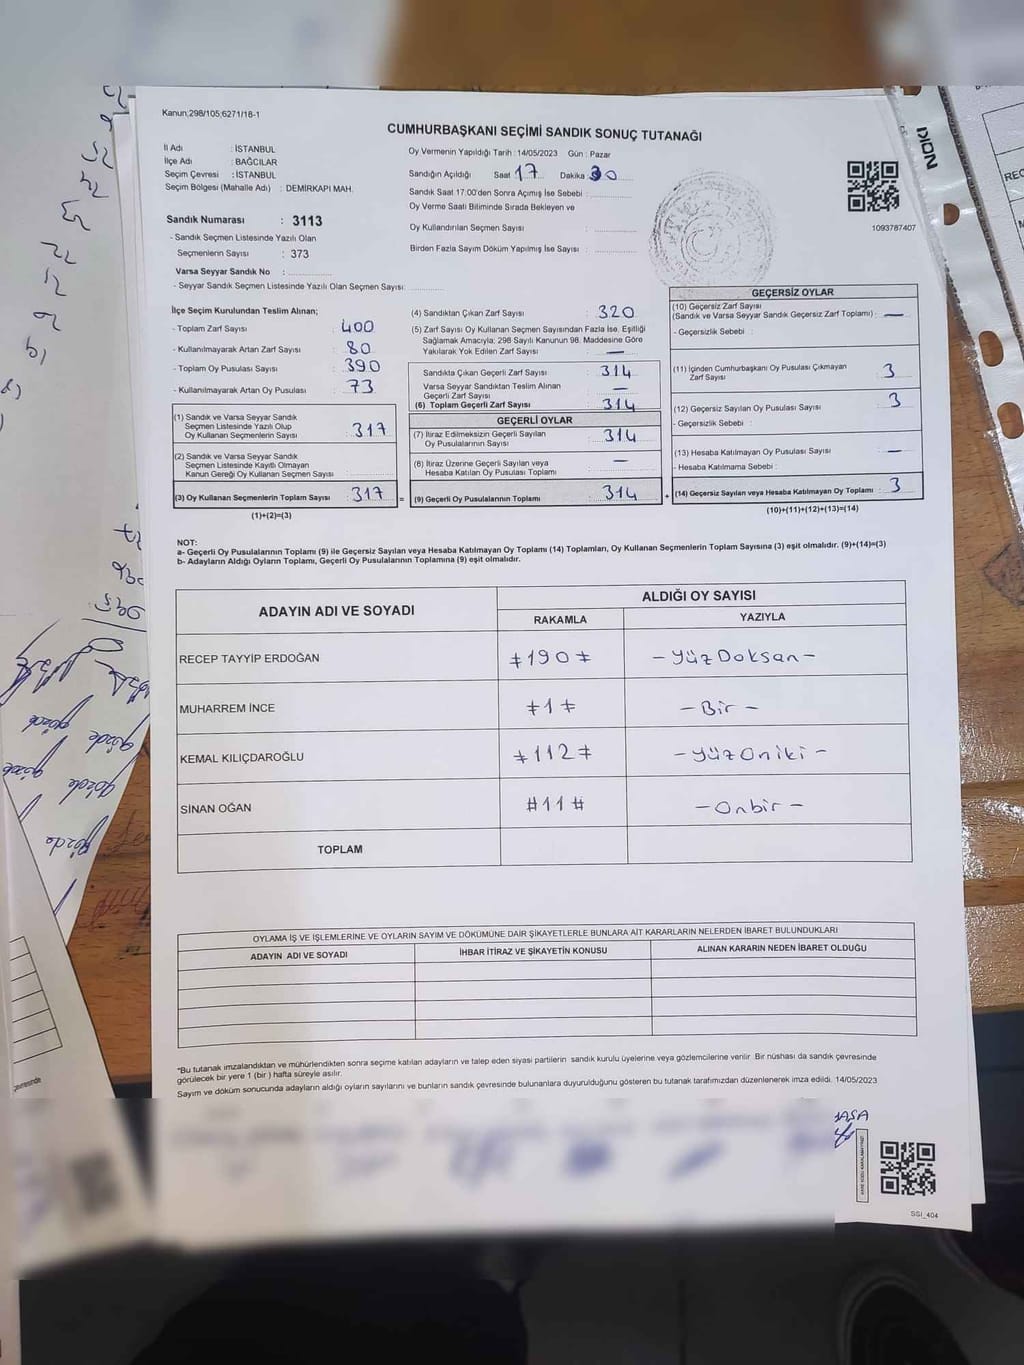 Kanun;298/105;6271/18-1
CUMHURBAŞKANI SEÇİMİ SANDIK SONUÇ TUTANAĞI
İl Adı : İSTANBUL
İlçe Adı : BAĞCILAR
Seçim Çevresi : İSTANBUL
Seçim Bölgesi (Mahalle Adı) : DEMİRKAPI MAH.
Sandık Numarası : 3113
- Sandık Seçmen Listesinde Yazılı Olan
Seçmenlerin Sayısı : 373
Varsa Seyyar Sandık No : ..............
- Seyyar Sandık Seçmen Listesinde Yazılı Olan Seçmen Sayısı: ..............
Oy Vermenin Yapıldığı Tarih : 14/05/2023 Gün : Pazar
Sandığın Açıldığı Saat 17 Dakika 30
Sandık Saat 17:00'den Sonra Açımış İse Sebebi : ..............
Oy Verme Saati Bitiminde Sırada Bekleyen ve
Oy Kullandırılan Seçmen Sayısı : ..............
Birden Fazla Sayım Döküm Yapılmış İse Sayısı : ..............
1093787407
NOKI
İlçe Seçim Kurulundan Teslim Alınan;
- Toplam Zarf Sayısı : 400
- Kullanılmayarak Artan Zarf Sayısı : 80
- Toplam Oy Pusulası Sayısı : 390
- Kullanılmayarak Artan Oy Pusulası : 73
(1) Sandık ve Varsa Seyyar Sandık
Seçmen Listesinde Yazılı Olup
Oy Kullanan Seçmenlerin Sayısı : 317
(2) Sandık ve Varsa Seyyar Sandık
Seçmen Listesinde Kayıtlı Olmayan
Kanun Gereği Oy Kullanan Seçmen Sayısı
(3) Oy Kullanan Seçmenlerin Toplam Sayısı : 317 =
(1)+(2)=(3)
(4) Sandıktan Çıkan Zarf Sayısı : 320
(5) Zarf Sayısı Oy Kullanan Seçmen Sayısından Fazla İse, Eşitliği
Sağlamak Amacıyla; 298 Sayılı Kanunun 98. Maddesine Göre
Yakılarak Yok Edilen Zarf Sayısı : —
Sandıkta Çıkan Geçerli Zarf Sayısı : 314
Varsa Seyyar Sandıktan Teslim Alınan
Geçerli Zarf Sayısı : —
(6) Toplam Geçerli Zarf Sayısı : 314
GEÇERLİ OYLAR
(7) İtiraz Edilmeksizin Geçerli Sayılan
Oy Pusulalarının Sayısı : 314
(8) İtiraz Üzerine Geçerli Sayılan veya
Hesaba Katılan Oy Pusulası Toplamı : —
(9) Geçerli Oy Pusulalarının Toplamı : 314 +
GEÇERSİZ OYLAR
(10) Geçersiz Zarf Sayısı
(Sandık ve Varsa Seyyar Sandık Geçersiz Zarf Toplamı) : —
- Geçersizlik Sebebi :
(11) İçinden Cumhurbaşkanı Oy Pusulası Çıkmayan
Zarf Sayısı : 3
(12) Geçersiz Sayılan Oy Pusulası Sayısı : 3
- Geçersizlik Sebebi :
(13) Hesaba Katılmayan Oy Pusulası Sayısı : —
- Hesaba Katılmama Sebebi :
(14) Geçersiz Sayılan veya Hesaba Katılmayan Oy Toplamı : 3
(10)+(11)+(12)+(13)=(14)
NOT:
a- Geçerli Oy Pusulalarının Toplamı (9) ile Geçersiz Sayılan veya Hesaba Katılmayan Oy Toplamı (14) Toplamları, Oy Kullanan Seçmenlerin Toplam Sayısına (3) eşit olmalıdır. (9)+(14)=(3)
b- Adayların Aldığı Oyların Toplamı, Geçerli Oy Pusulalarının Toplamına (9) eşit olmalıdır.
ADAYIN ADI VE SOYADI
ALDIĞI OY SAYISI
RAKAMLA YAZIYLA
RECEP TAYYİP ERDOĞAN ≠190≠ - Yüz Doksan -
MUHARREM İNCE ≠1≠ - Bir -
KEMAL KILIÇDAROĞLU ≠112≠ - Yüz Oniki -
SİNAN OĞAN #11# - Onbir -
TOPLAM
OYLAMA İŞ VE İŞLEMLERİNE VE OYLARIN SAYIM VE DÖKÜMÜNE DAİR ŞİKAYETLERLE BUNLARA AİT KARARLARIN NELERDEN İBARET BULUNDUKLARI
ADAYIN ADI VE SOYADI İHBAR İTİRAZ VE ŞİKAYETİN KONUSU ALINAN KARARIN NEDEN İBARET OLDUĞU
*Bu tutanak imzalandıktan ve mühürlendikten sonra seçime katılan adayların ve talep eden siyasi partilerin sandık kurulu üyelerine veya gözlemcilerine verilir. Bir nüshası da sandık çevresinde
görülecek bir yere 1 (bir ) hafta süreyle asılır.
Sayım ve döküm sonucunda adayların aldığı oyların sayılarını ve bunların sandık çevresinde bulunanlara duyurulduğunu gösteren bu tutanak tarafımızdan düzenlenerek imza edildi. 14/05/2023
SSI_404
gözde
gözde
gözde
gözde
gözde